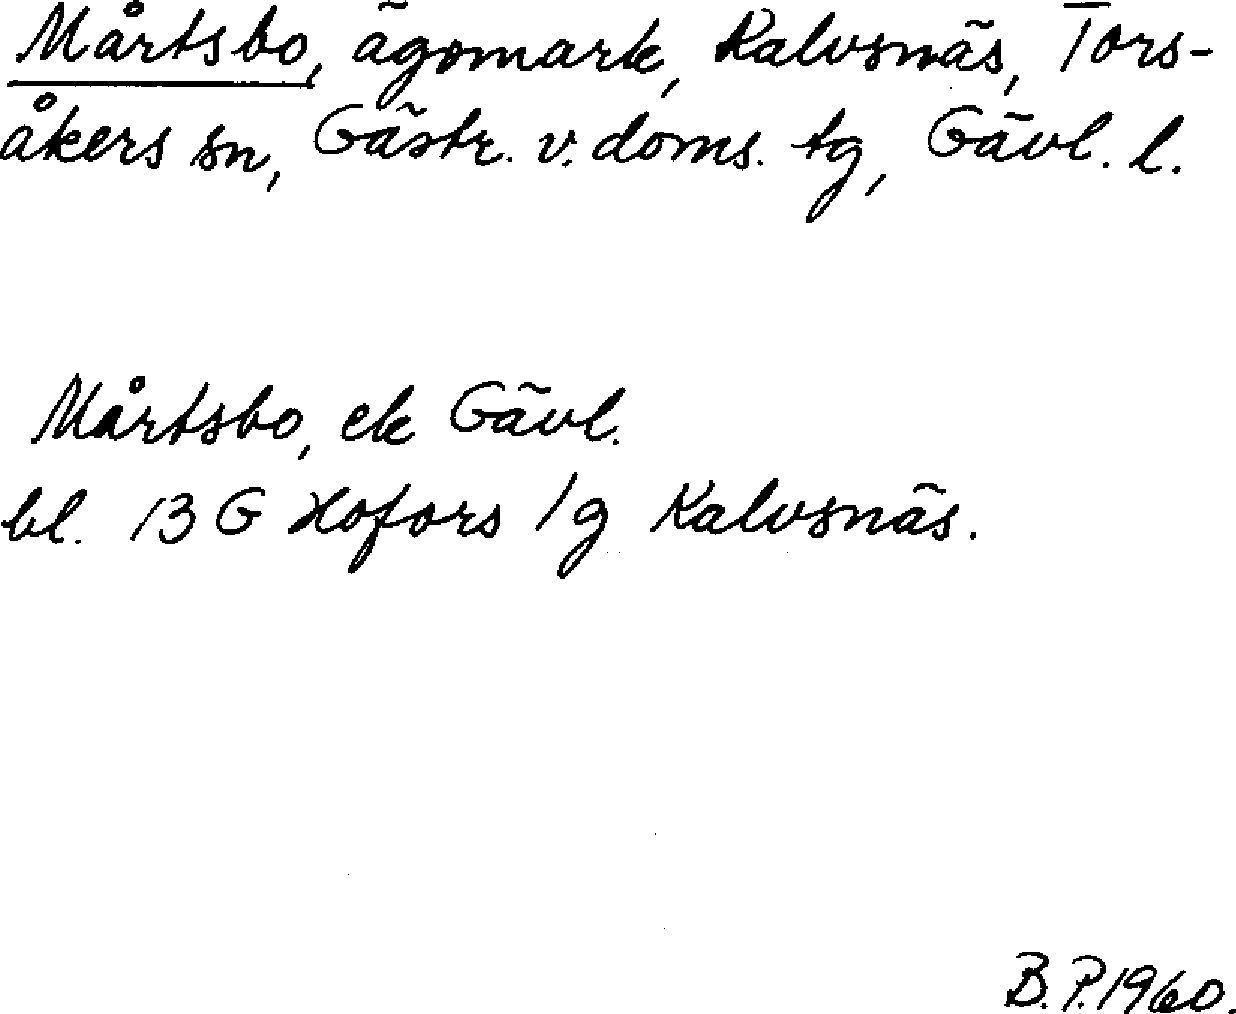 Mårtsbo, ägomark, Kalvsnäs, Tors-
åkers sn, Gästr. v. doms. tg, Gävl. l.
Mårtsbo, ek Gävl.
bl. 13 G Hofors 1g Kalvsnäs.
B.P. 1960.